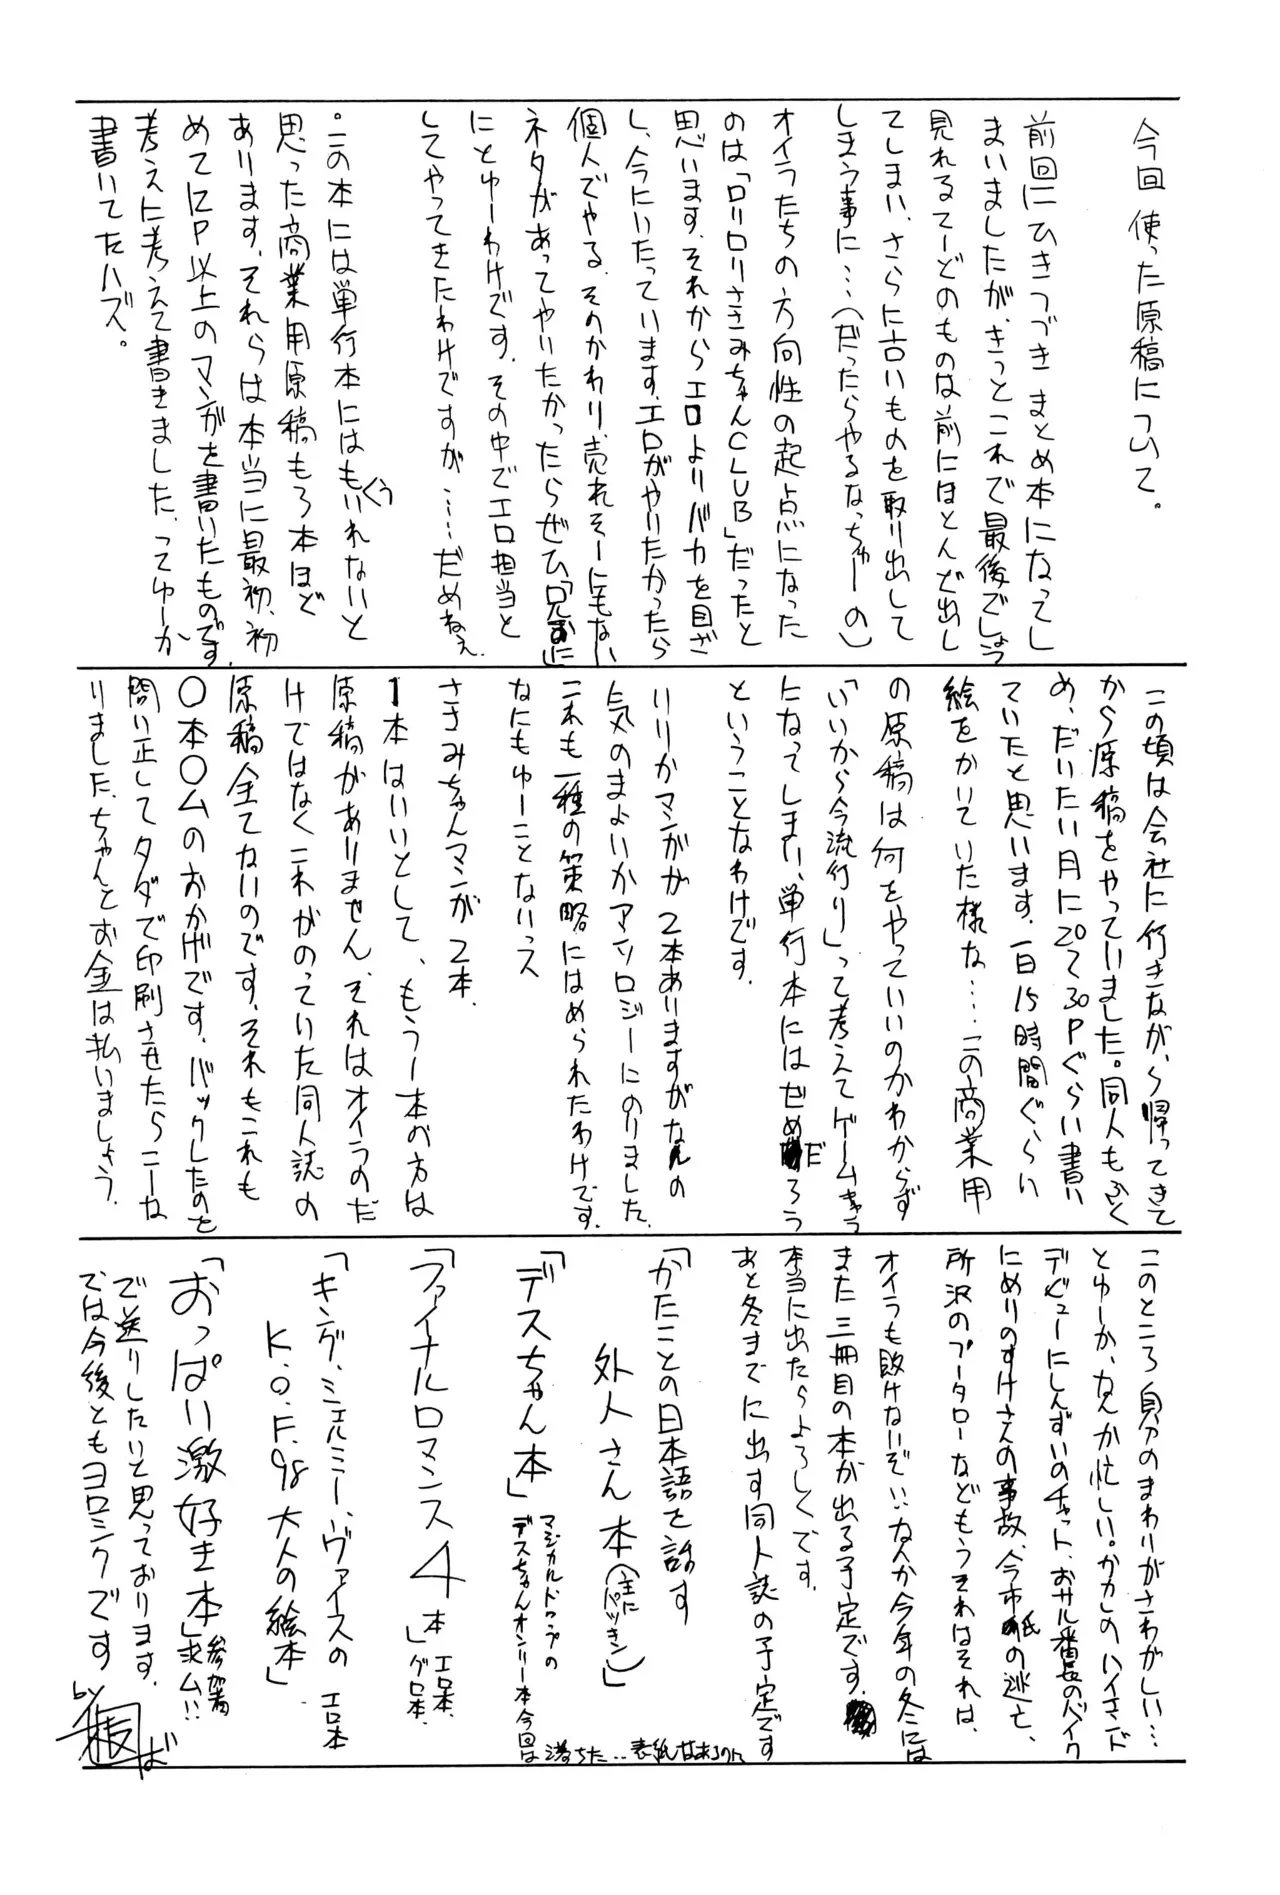 今回使った原稿について。
前回にひきつづきまとめ本になってし
まいましたが、きっとこれで最後でしょう
見れるてーどのものは前にほとんど出し
てしまい、さらに古いものを取り出して
しまう事に…(だったらやるなっちゅーの)
オイラたちの方向性の起点になった
のは「ロリロリささみちゃんCLUB」だったと
思います、それからエロよりバカを目ざ
し、今にいたっています、エロがやりたかったら
個人でやる、そのかわり売れそーにもない
ネタがあってやりたかったらぜひ「兄に」
にとゆーわけです、その中でエロ担当と
してやってきたわけですが……だめねぇ
。この本には単行本にはもういれないと
思った商業用原稿も3本ほど
あります、それらは本当に最初、初
めて12P以上のマンガを書いたものです、
考えに考えて書きました、ってゆーか
書いてたハズ。
この頃は会社に行きながら帰ってきて
から原稿をやっていました。同人もふく
め、だいたい月に20〜30Pぐらい書い
ていたと思います、一日15時間ぐらい
絵をかいていた様な…この商業用
の原稿は何をやっていいのかわからず
「いいから今流行り」って考えてゲームキャラ
になってしまい、単行本にはぜめだろう
ということなわけです。
いりかマンガが2本ありますがなんの
気のまよいかアンソロジーにのりました、
これも一種の策略にはめられたわけです、
なにもゆーことないっス
ささみちゃんマンガ2本、
1本はいいとして、もう一本の方は
原稿がありません、それはオイラのだ
けではなくこれがのっていた同人誌の
原稿全てないのです、それもこれも
〇本〇ムのおかげです、バックしたのと
問い正してタダで印刷させたらこーな
りました、ちゃんとお金は払いましょう、
このところ自分のまわりがさわがしい…
とゆーか、なんか忙しい。かかしのハイさんド
デビューにしんずいのチャット、おサル番長のバイク
にめりのすけさんの事故、今市紙の逃亡、
所沢のプータローなどもうそれはそれは、
オイラも敗けないぞい！なんか今年の冬には
また三冊目の本が出る予定です、
本当に出たらよろしくです、
あと冬までに出す同人誌の予定です
「かたことの日本語を話す
外人さん本(主にパツキン)」
「デスちゃん本」マジカルドロップの
デスちゃんオンリー本今回は落ちた‥表紙はあるのに
「ファイナルロマンス4本」エロ本、グロ本、
「キング、シェルミー、ヴァイスのエロ本
K.O.F.98大人の絵本」
「おっぱい激好き本」参加者求ム!!
で送りしたいと思っております、
では今後ともヨロシクです
by